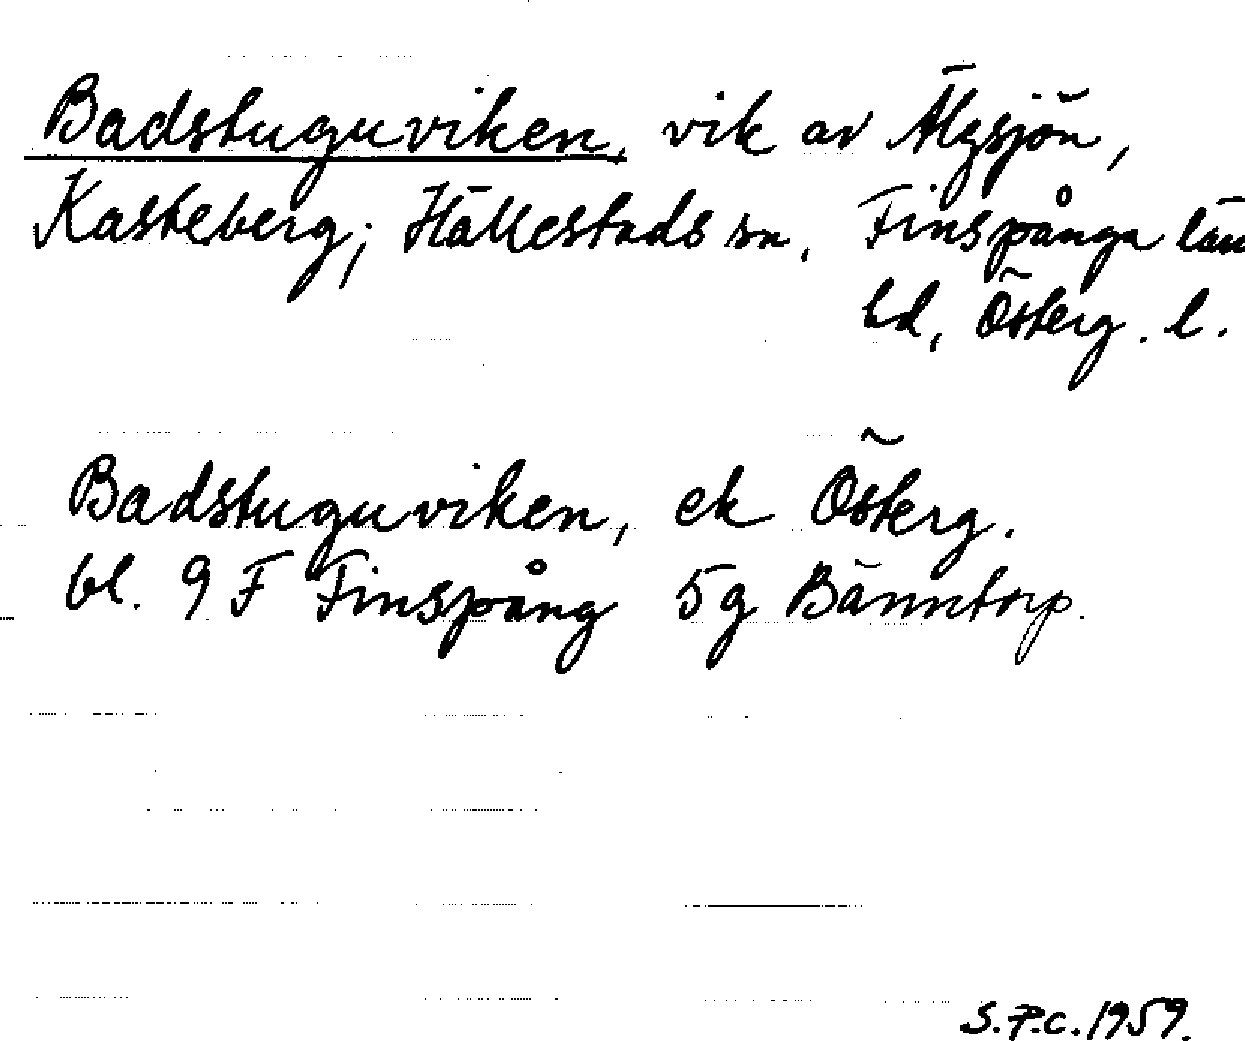 Badstuguviken, vik av Älgsjön,
Kasteberg; Hällestads sn, Finspånga län
hd, Österg. l.
Badstuguviken, ek Österg.
bl. 9 F Finspång 5g Bänntorp.
S.P.C. 1959.